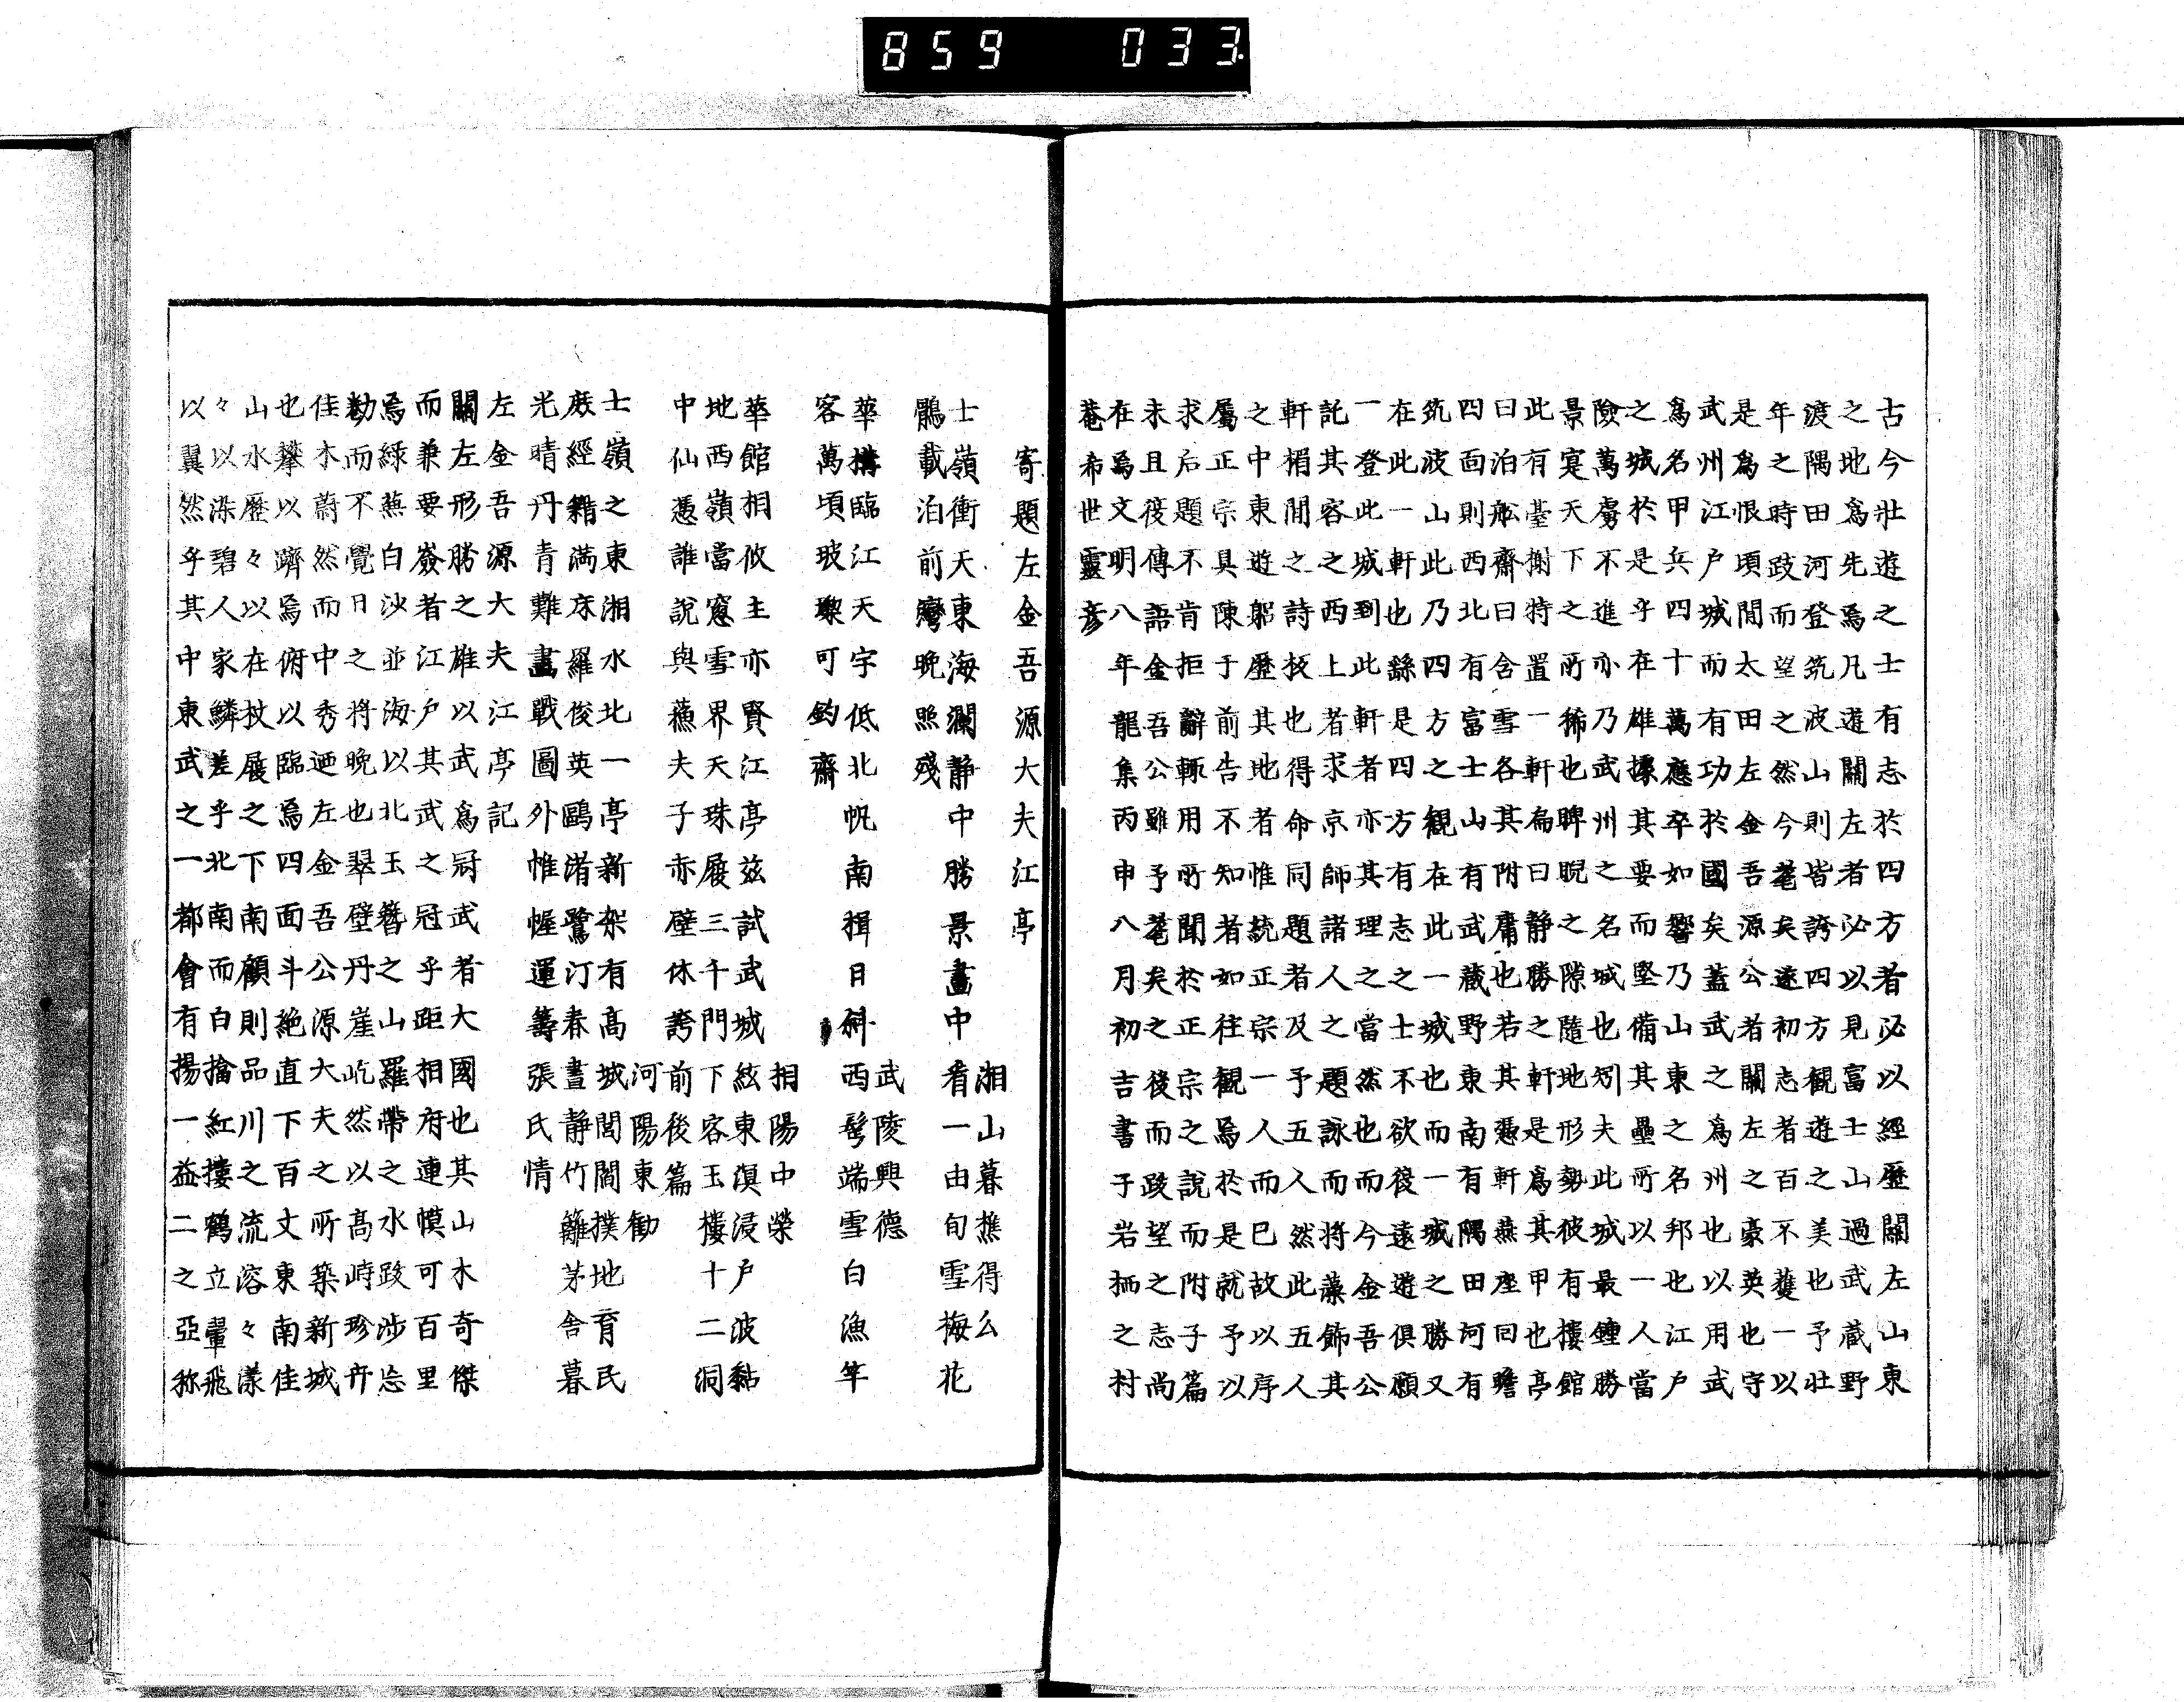 古今壮遊之士有志於四方者必以經歴關左山東
之地為先焉凡遊關左者必見富士山過武藏野
渡隅田河登筑波山則皆誇四方観遊之美也予壮
年之時跂而望之然今耄矣遂初志者百不獲一以
是為恨頃間太田左金吾源公者關左之豪英也守
武州江戸城而有功於國矣蓋武之為州也以用武
為名甲兵四十萬應卒如響乃山東之名邦也江戸
之城於是乎在雄據其要而堅備其壘所以一人當
險萬虜不進亦乃武州之名城也矧夫此城最鐘勝
景寔天下之所稀也睥睨之隙隨地形勢彼有樓館
此有臺榭特置一軒扁曰静勝之軒是為其甲也亭
曰泊舩齋曰含雪各其附庸也若其憑軒燕座回瞻
四面則西北有富士山有武藏野東南有隅田河有
筑波山此乃四方之観在此一城也而一城之勝又
在此一軒也繇是四方有志之士不欲後遠遊俱願
一登此城到此軒者亦其理之當然也而今金吾公
託其容之西上者求京師諸人之題詠而将藻飾其
軒楣間之詩扳也得命同題者及予五人然此五人
之中東遊躬歴其地者惟統正宗一人而已故以序
屬正宗具陳于前告不知者如往観焉於是就予以
求后題不肯拒辭輙用所聞於正宗之説而附予篇
未且筏傳語金吾公雖予耄矣之後而跂望之志尚
在焉文明八年龍集丙申八月初吉書子岩栖之村
菴希世靈彦
寄題左金吾源大夫江亭
湘山暮樵得么
士嶺衝天東海瀾静中勝景畫中看一由旬雪梅花
鵬載泊前灣晩照殘
武陵興德
華構臨江天宇低北帆南揖日斜西髩端雪白漁竿
客萬頃玻瓈可釣齋
相陽中栄
華館相攸主亦賢江亭茲試武城絃東溟浸戸波黏
地西嶺當窓雪界天珠履三千門下客玉樓十二洞
中仙憑誰説與蘓夫子赤壁休誇前後篇
河陽東勧
士嶺之東湘水北一亭新架有高城閭閻撲地育民
廒經籍滿床羅俊英鷗渚鷺汀春晝静竹籬茅舎暮
光晴丹青難畫戰圖外惟幄運籌張氏情
左金吾源大夫江亭記
關左形勝之雄以武為冠武者大國也其山木奇傑
而兼要者江戸其武之冠乎距相府連幙可百里
焉緑蕪白沙並海以北玉簪之山羅帶之水跋渉忘
勸而不覺日之将晩也翠壁丹崖屹然以高峙珍卉
佳木蔚然而中秀迺左金吾公源大夫之所築新城
也攀以躋焉俯以臨焉四面斗絶直下百丈東南佳
山水歴々以在杖履之下南顧則品川之流溶々漾
々以染碧人家鱗差乎北南而白墻紅樓鶴立翬飛
以翼然乎其中東武之一都會有揚一益二之亞称
859 033